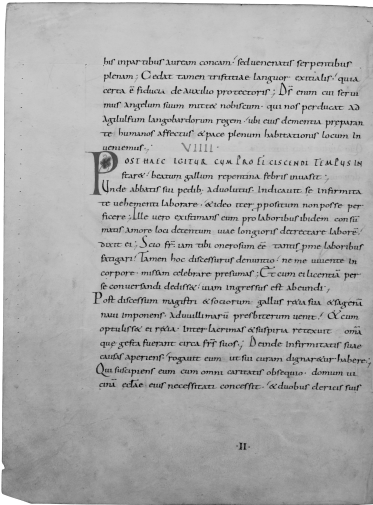 his inpartibus auream concam; sed uenenatis serpentibus
plenam; Cedat tamen tristitiae languor exitialis, quia
certa est fiducia de auxilio protectoris; Ds enim cui serui
mus angelum suum mittet nobiscum, qui nos perducat ad
agilulfum langobardorum regem, ubi eius clementia preparan
te humanos affectus & pace plenum habitationis locum in
ueniemus;
VIIII
POST HAEC IGITUR CUM PROFICISCENDI TEMPUS IN
staret, beatum gallum repentina febris inuasit,
Unde abbatis sui pedib; aduolutus, Indicauit se infirmita
te uehementi laborare, & ideo iter ppositum non posse per
ficere; Ille uero existimans eum pro laboribus ibidem consu
matis amore loci detentum, uiae longioris detrectare laborē,
dixit ei; Scio fr iam tibi onerosum eē tantis pme laboribus
fatigari, Tamen hoc discessurus denuntio, ne me uiuente in
corpore, missam celebrare presumas; Et cum ei licentiā per
se conuersandi dedisset, uiam ingressus est abeundi,
Post discessum magistri & sociorum gallus retia sua & sagenā
naui imponens, ad uuillimarū presbiterum uenit, & cum
optulisset ei retia, Inter lacrimas & suspiria retexuit omā
que gesta fuerant circa frs suos; Deinde infirmitatis suae
causas aperiens, rogauit eum ut sui curam dignaretur habere;
Qui suscipiens eum cum omni caritatis obsequio, domum ui
cinā ecclae eius necessitati concessit, & duobus clericis suis
·II·